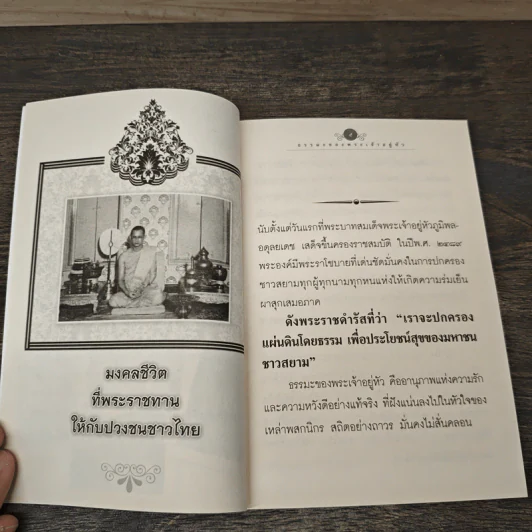 มงคลชีวิต
ที่พระราชทาน
ให้กับปวงชนชาวไทย
๕
ธรรมะของพระเจ้าอยู่หัว
นับตั้งแต่วันแรกที่พระบาทสมเด็จพระเจ้าอยู่หัวภูมิพล-
อดุลยเดช เสด็จขึ้นครองราชสมบัติ ในปีพ.ศ. ๒๔๘๙
พระองค์มีพระราโชบายที่เด่นชัดมั่นคงในการปกครอง
ชาวสยามทุกผู้ทุกนามทุกหนแห่งให้เกิดความร่มเย็น
ผาสุกเสมอภาค
ดังพระราชดำรัสที่ว่า “เราจะปกครอง
แผ่นดินโดยธรรม เพื่อประโยชน์สุขของมหาชน
ชาวสยาม”
ธรรมะของพระเจ้าอยู่หัว คืออานุภาพแห่งความรัก
และความหวังดีอย่างแท้จริง ที่ฝังแน่นลงไปในหัวใจของ
เหล่าพสกนิกร สถิตอย่างถาวร มั่นคงไม่สั่นคลอน